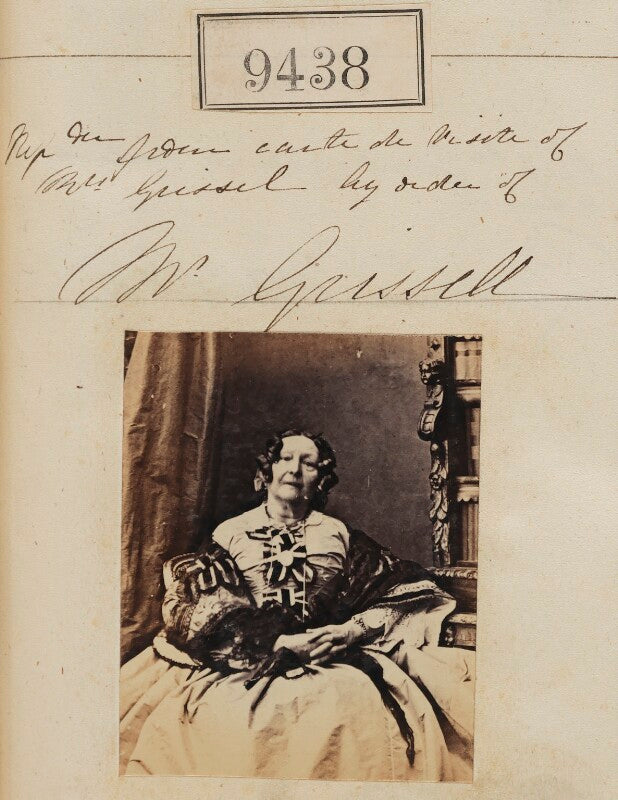 9438
from carte de visite of
Mrs Grissel by order of
Mr. Grissell